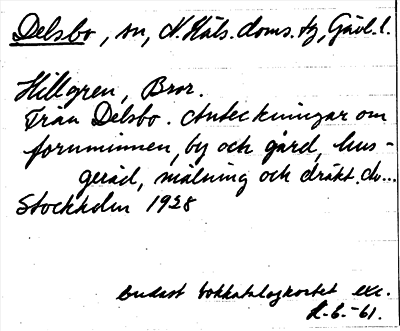 Delsbo, sn, N. Häls. doms. tg, Gävl. l.
Hillgren, Bror.
Från Delsbo. Anteckningar om
fornminnen, by och gård, hus-
geråd, målning och dräkt. do...
Stockholm 1928
Endast bokkatalogkortet exc.
6.-61.